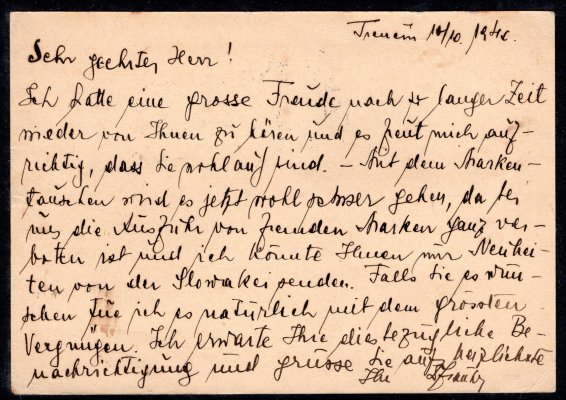 Trencin 10/10. 194
Sehr geehrter Herr!
Ich hatte eine grosse Freude nach so langer Zeit
wieder von Ihnen zu hören und es freut mich auf-
richtig, dass Sie wohlauf sind. – Mit dem Marken-
tauschen wird es jetzt wohl schwer gehen, da bei
uns die Ausfuhr von fremden Marken ganz ver-
boten ist und ich könnte Ihnen nur Neuhei-
ten von der Slowakei senden. Falls Sie es wün-
schen tue ich es natürlich mit dem grössten
Vergnügen. Ich erwarte Ihre diesbezügliche Be-
nachrichtigung und grüsse Sie aufs herzlichste
Ihr